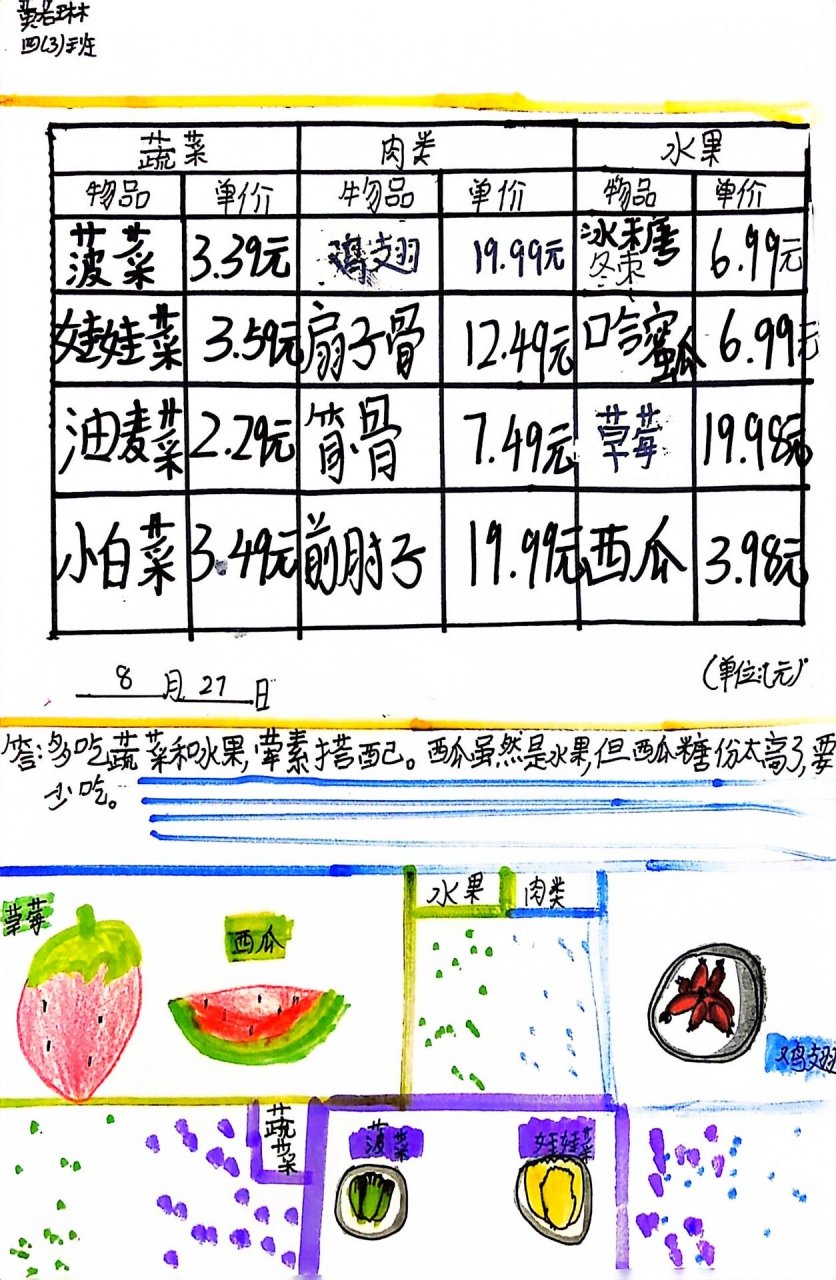 黄若琳
四(3)班
蔬菜 肉类 水果
物品 单价 物品 单价 物品 单价
菠菜 3.39元 鸡翅 19.99元 冰糖冬枣 6.99元
娃娃菜 3.59元 扇子骨 12.49元 哈蜜瓜 6.99元
油麦菜 2.29元 筒骨 7.49元 草莓 19.98元
小白菜 3.49元 前肘子 19.99元 西瓜 3.98元
8月27日
(单位:元)
答:多吃蔬菜和水果,荤素搭配。西瓜虽然是水果,但西瓜糖份太高了,要
少吃。
水果 肉类
草莓 西瓜
鸡翅
蔬菜 菠菜 娃娃菜